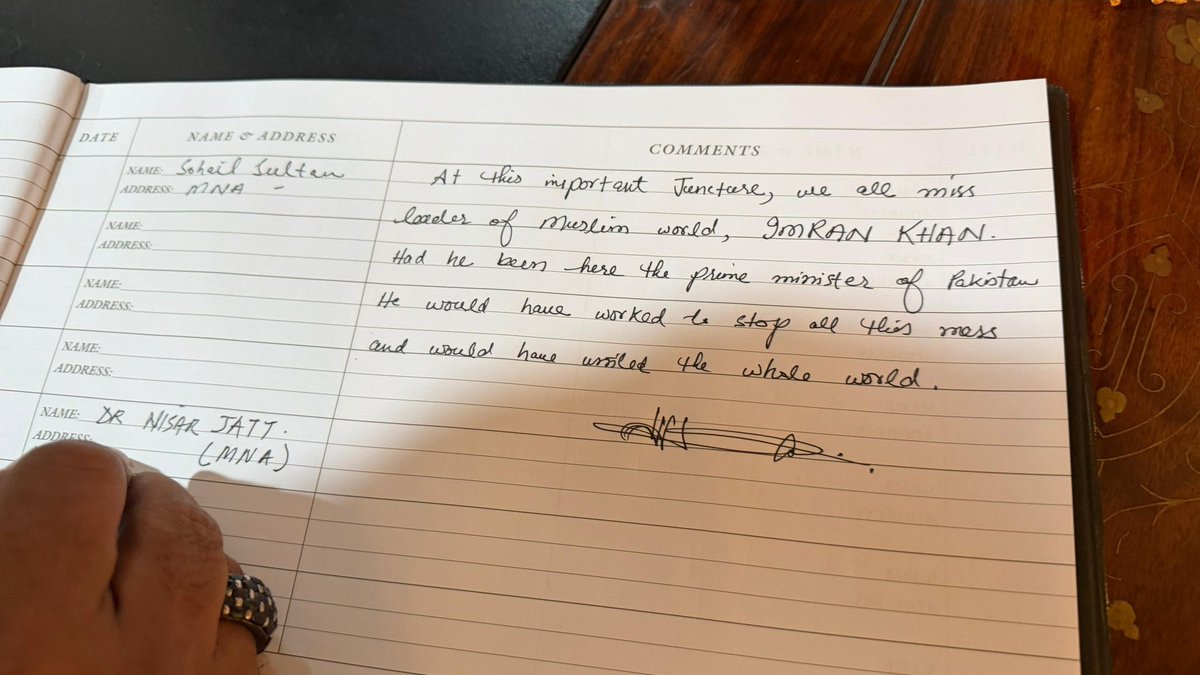 DATE NAME & ADDRESS COMMENTS
NAME: Sohail Sultan
ADDRESS: MNA -
At this important Juncture, we all miss
leader of Muslim world, IMRAN KHAN.
Had he been here the prime minister of Pakistan
He would have worked to stop all this mess
and would have united the whole world.
NAME:
ADDRESS:
NAME:
ADDRESS:
NAME:
ADDRESS:
NAME: DR NISAR JATT.
ADDRESS:
(MNA)